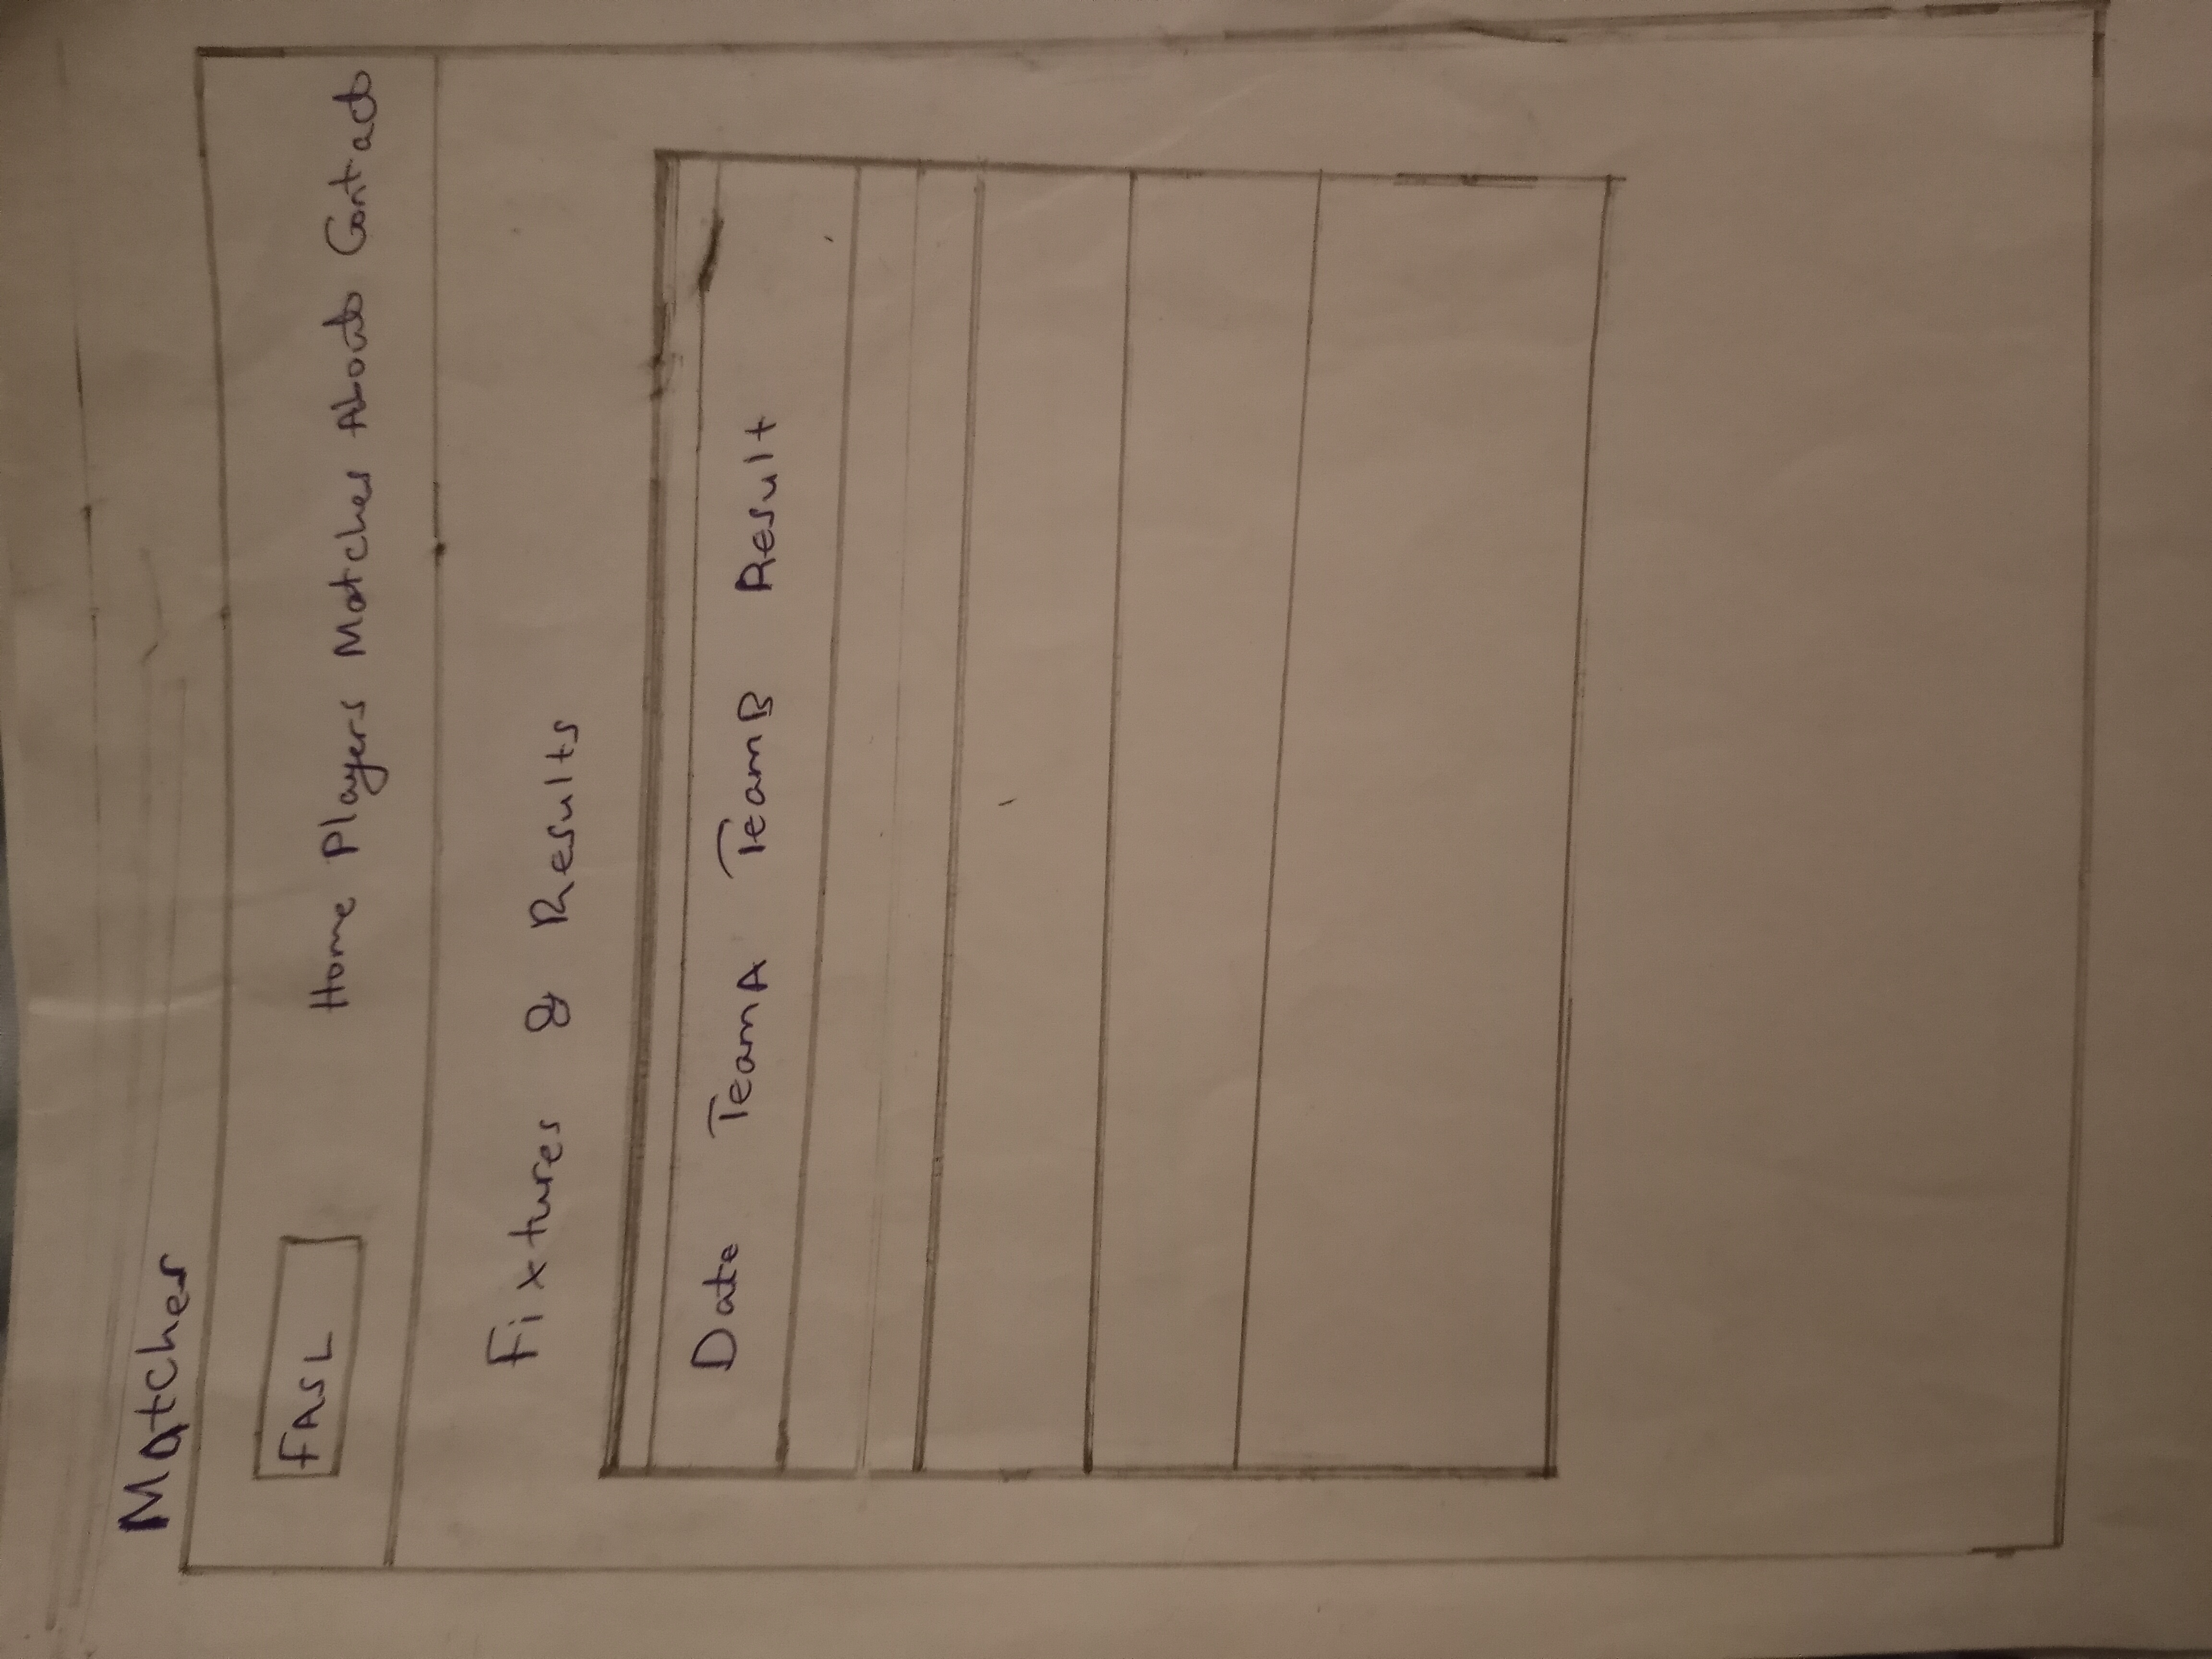 Matches
FASL
Home Players Matches About Contact
Fixtures & Results
Date TeamA TeamB Result